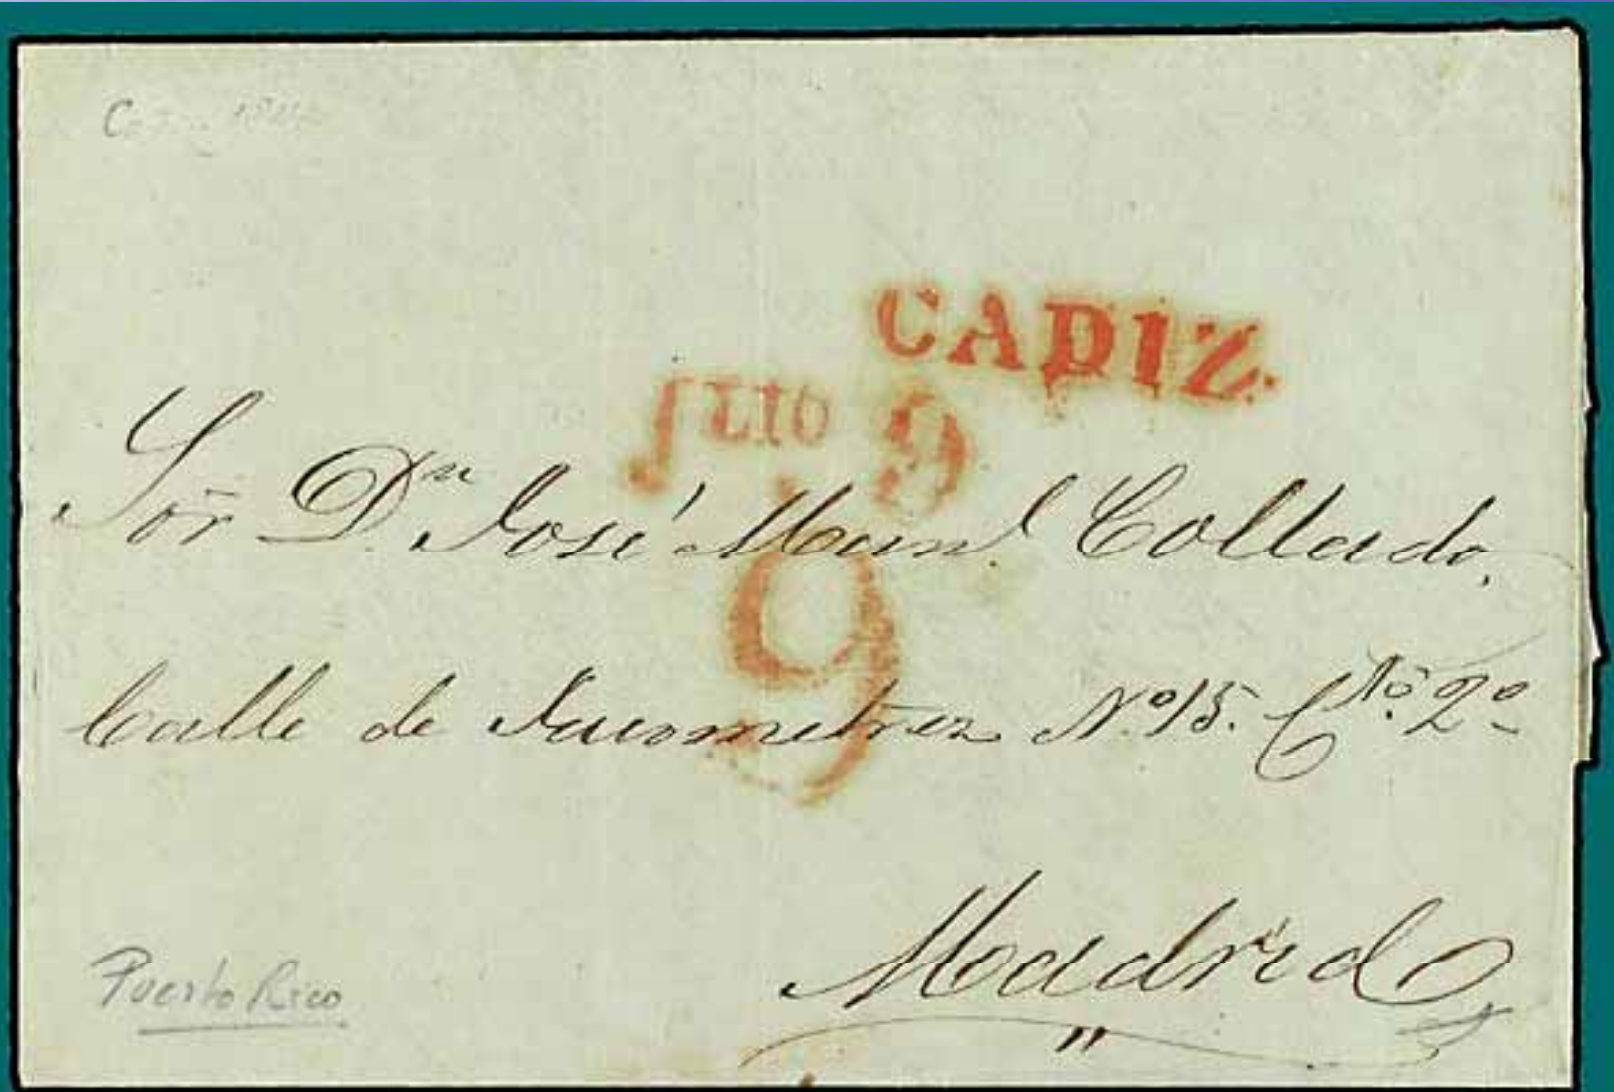 CADIZ.
JLIO 9
Sor Dn José Manl Collado,
9
Calle de Jacometrezo Nº 15. Cto. 2º
Madrid
Puerto Rico